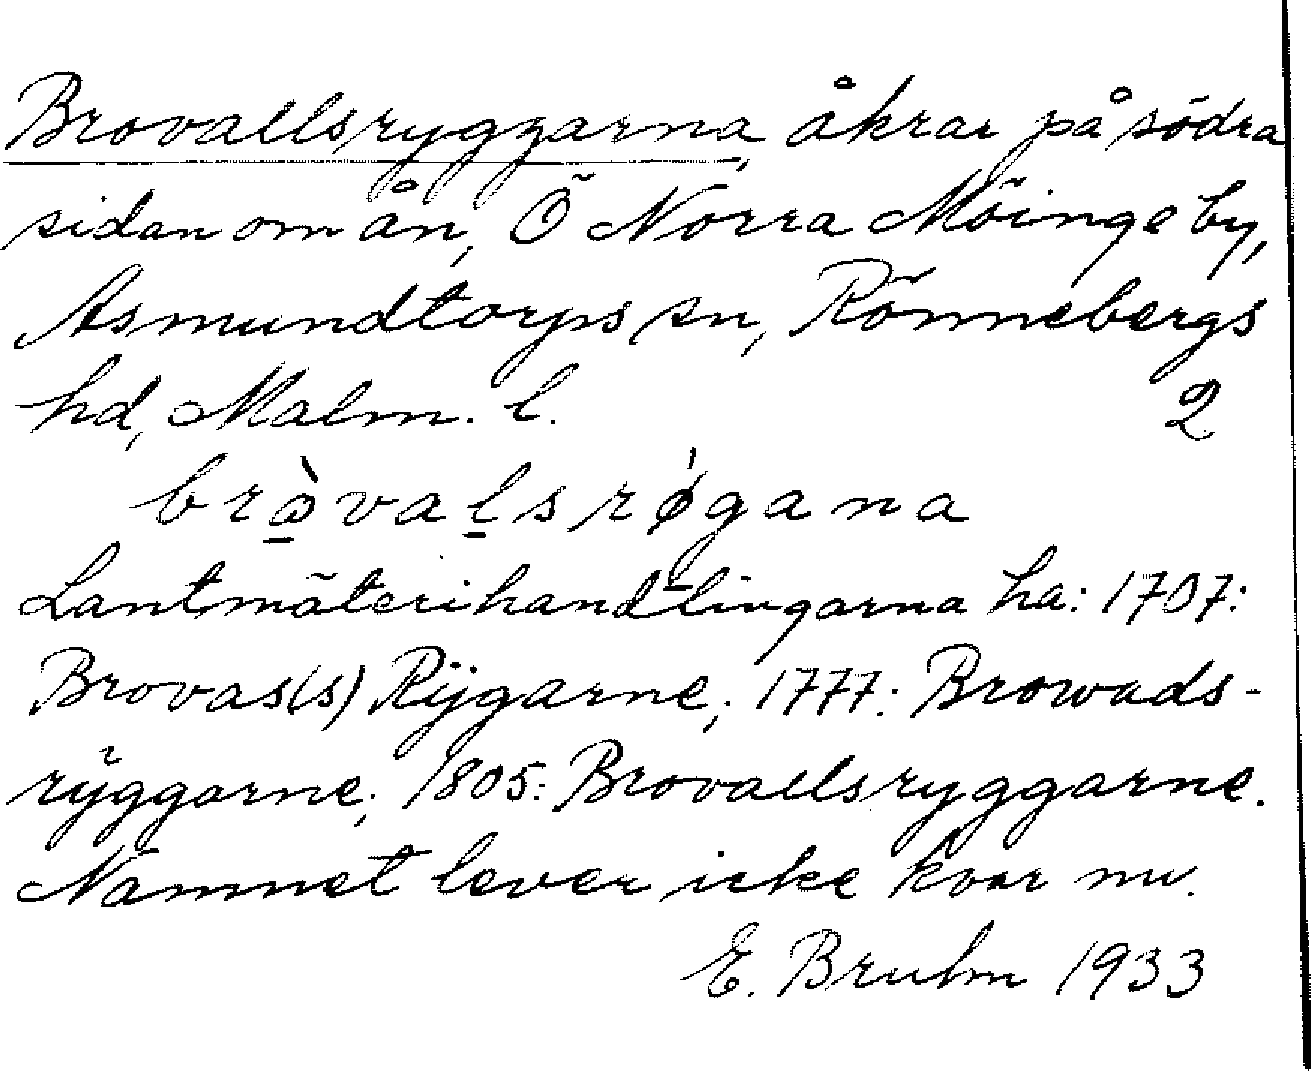 Brovallsryggarna, åkrar på södra
sidan om ån, Ö Norra Möinge by,
Asmundtorps sn, Rönnebergs
hd, Malm. l. 2
bròvalsrǿgana
Lantmäterihandlingarna ha: 1707:
Brovas(s) Rÿgarne; 1777: Browads-
rÿggarne; 1805: Brovallsryggarne.
Namnet lever icke kvar nu.
E. Bruhn 1933